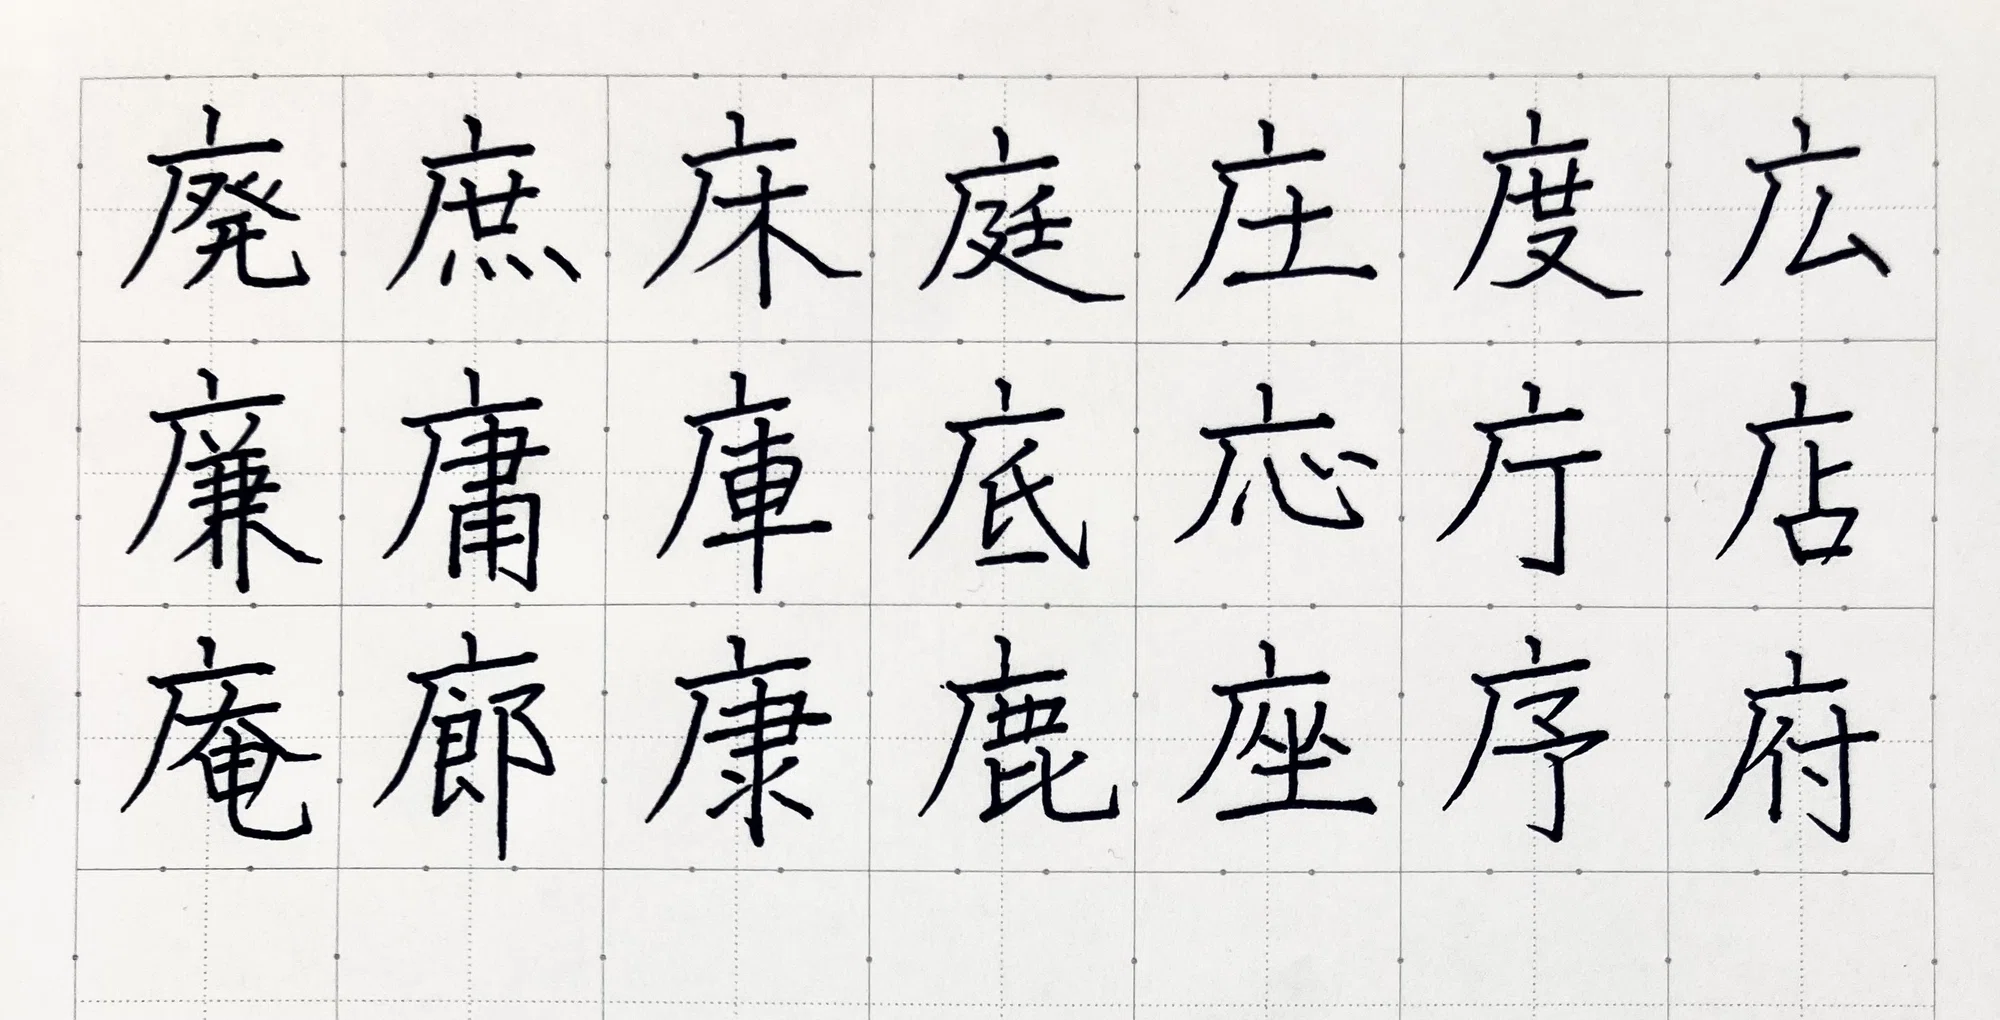 広店府
度庁序
庄応座
庭底鹿
床庫康
庶庸廊
廃廉庵